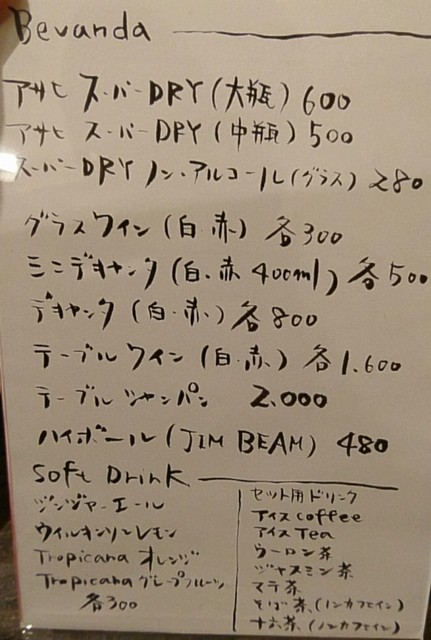 Bevanda
アサヒ スーパーDRY (大瓶) 600
アサヒ スーパーDRY (中瓶) 500
スーパーDRY ノン・アルコール (グラス) 280
グラスワイン (白・赤) 各300
ミニデキャンタ (白・赤 400ml) 各500
デキャンタ (白・赤) 各800
テーブルワイン (白・赤) 各1.600
テーブルシャンパン 2.000
ハイボール (JIM BEAM) 480
Soft Drink
ジンジャーエール
ウィルキンソンレモン
Tropicana オレンジ
Tropicana グレープフルーツ
各300
セット用ドリンク
アイスcoffee
アイスTea
ウーロン茶
ジャスミン茶
マテ茶
そば茶 (ノンカフェイン)
十六茶 (ノンカフェイン)